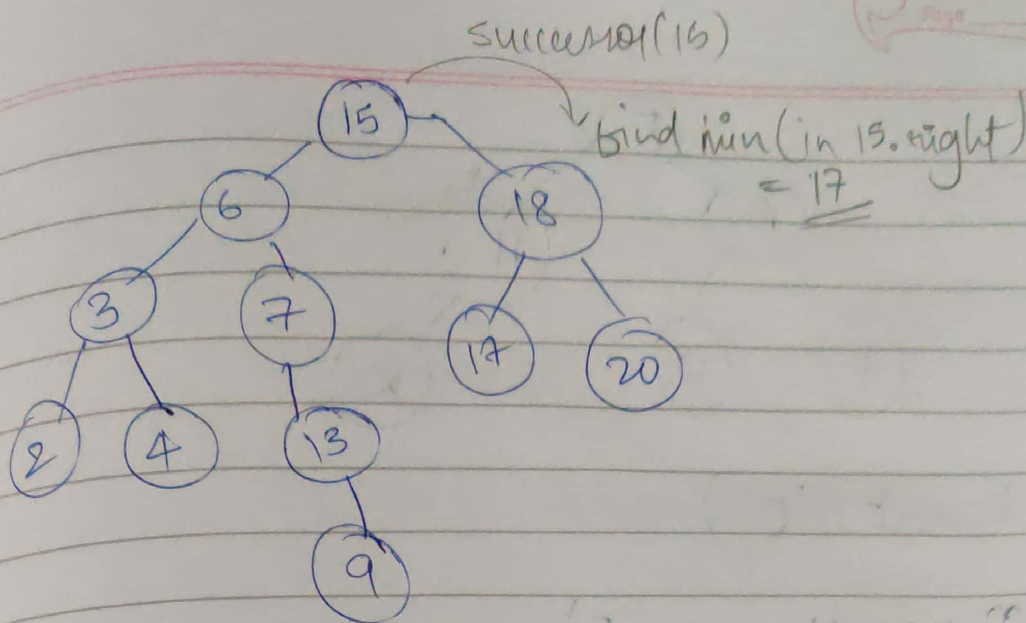 Page
successor(15)
15
find min (in 15.right)
= 17
6
18
3
7
17
20
2
4
13
9